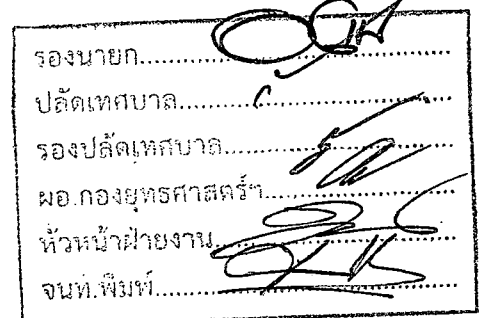 รองนายก..............................
ปลัดเทศบาล..............................
รองปลัดเทศบาล..............................
ผอ.กองยุทธศาสตร์ฯ..............................
หัวหน้าฝ่ายงาน..............................
จนท.พิมพ์..............................